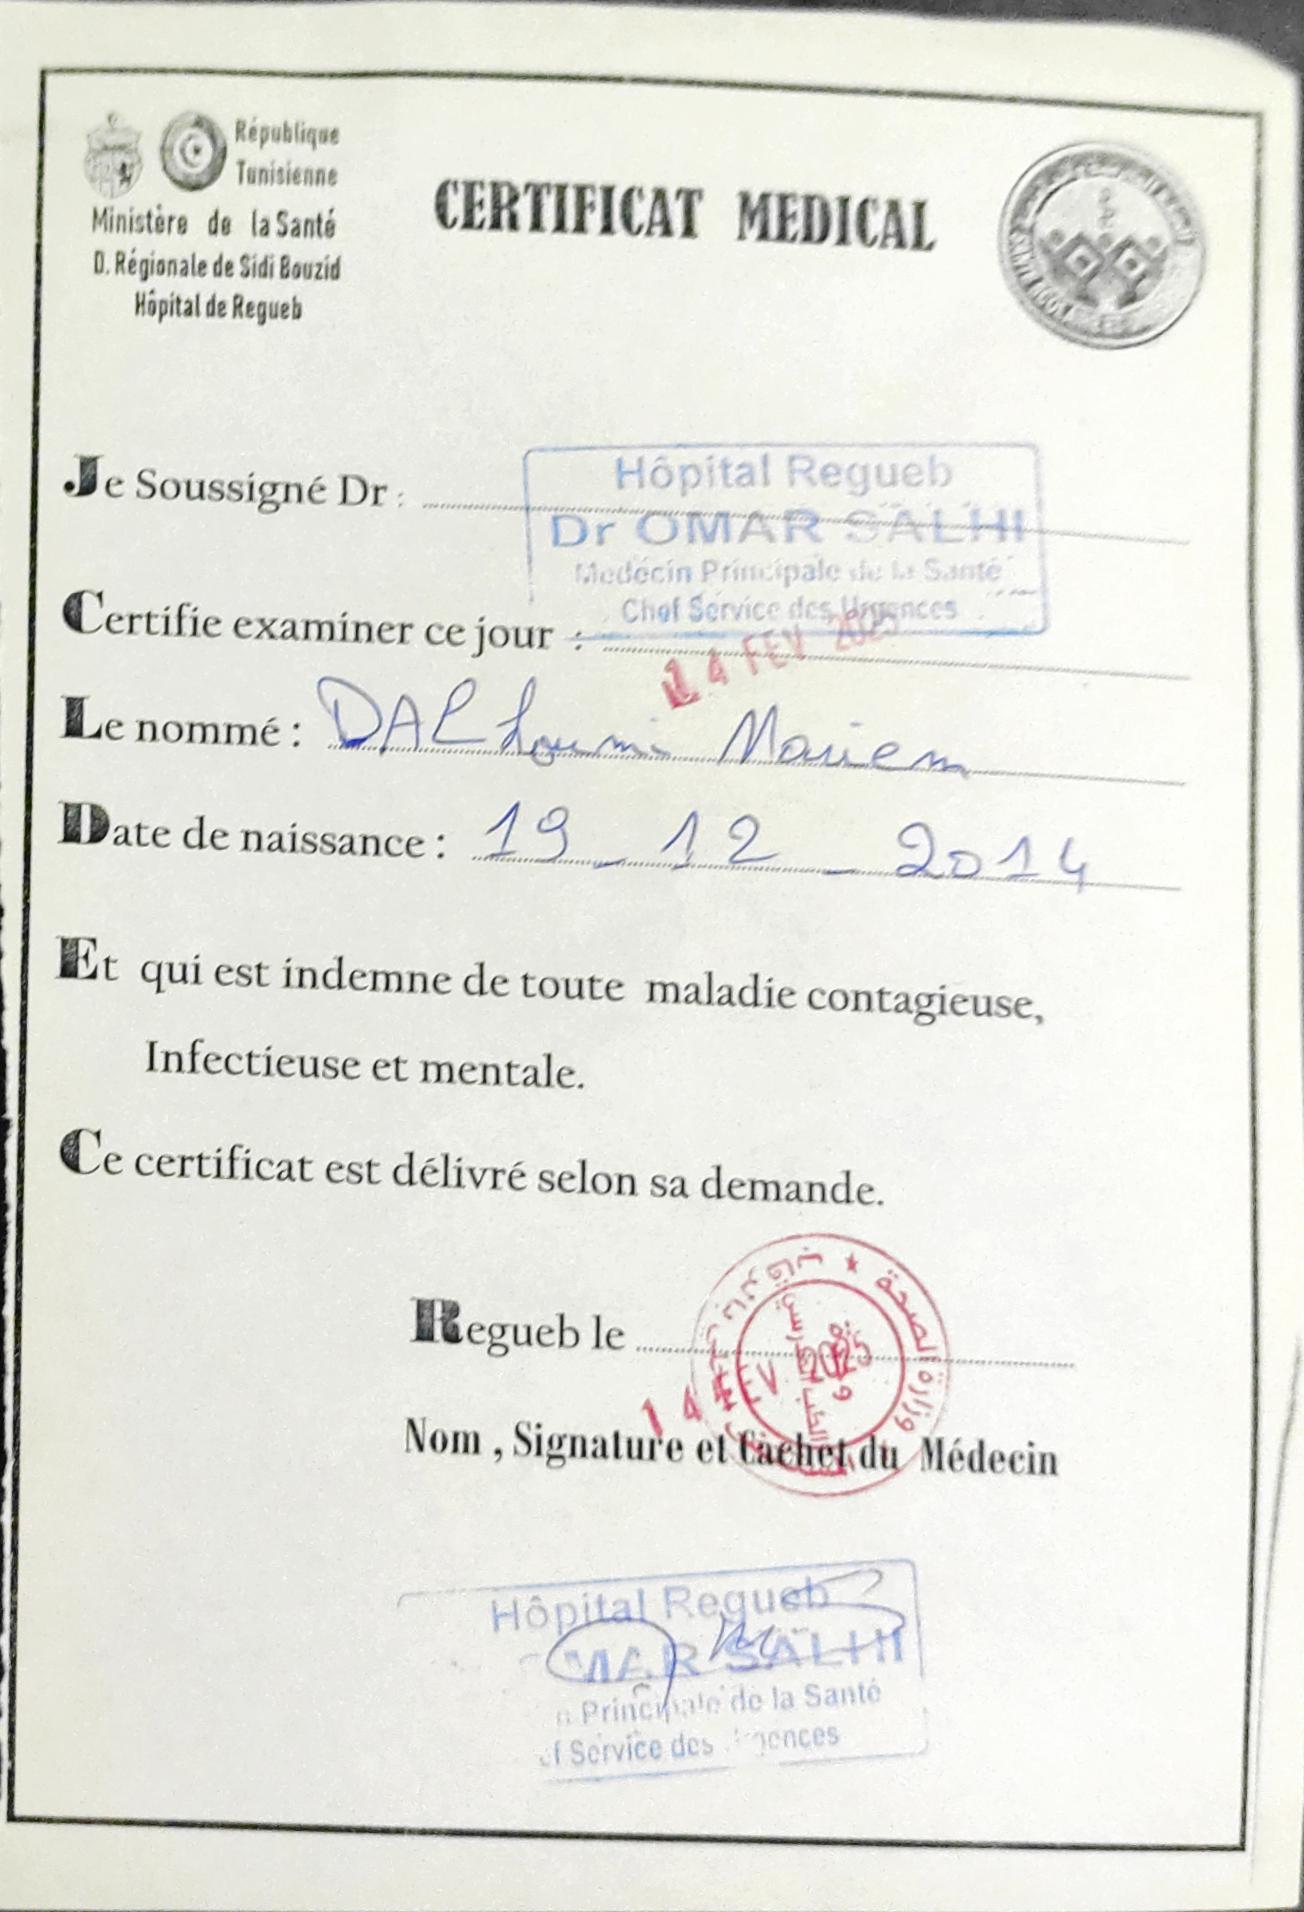 République
Tunisienne
Ministère de la Santé
D. Régionale de Sidi Bouzid
Hôpital de Regueb
CERTIFICAT MEDICAL
Je Soussigné Dr :
Hôpital Regueb
Dr OMAR SALHI
Medécin Principale de la Santé
Chef Service des Urgences
Certifie examiner ce jour :
14 FEV 2025
Le nommé : DALhoumi Mariem
Date de naissance : 19_12_2014
Et qui est indemne de toute maladie contagieuse,
Infectieuse et mentale.
Ce certificat est délivré selon sa demande.
Regueb le
14 FEV. 2025
وزارة الصحة
Nom , Signature et Cachet du Médecin
Hôpital Regueb
MAR SALHI
Principale de la Santé
f Service des gences